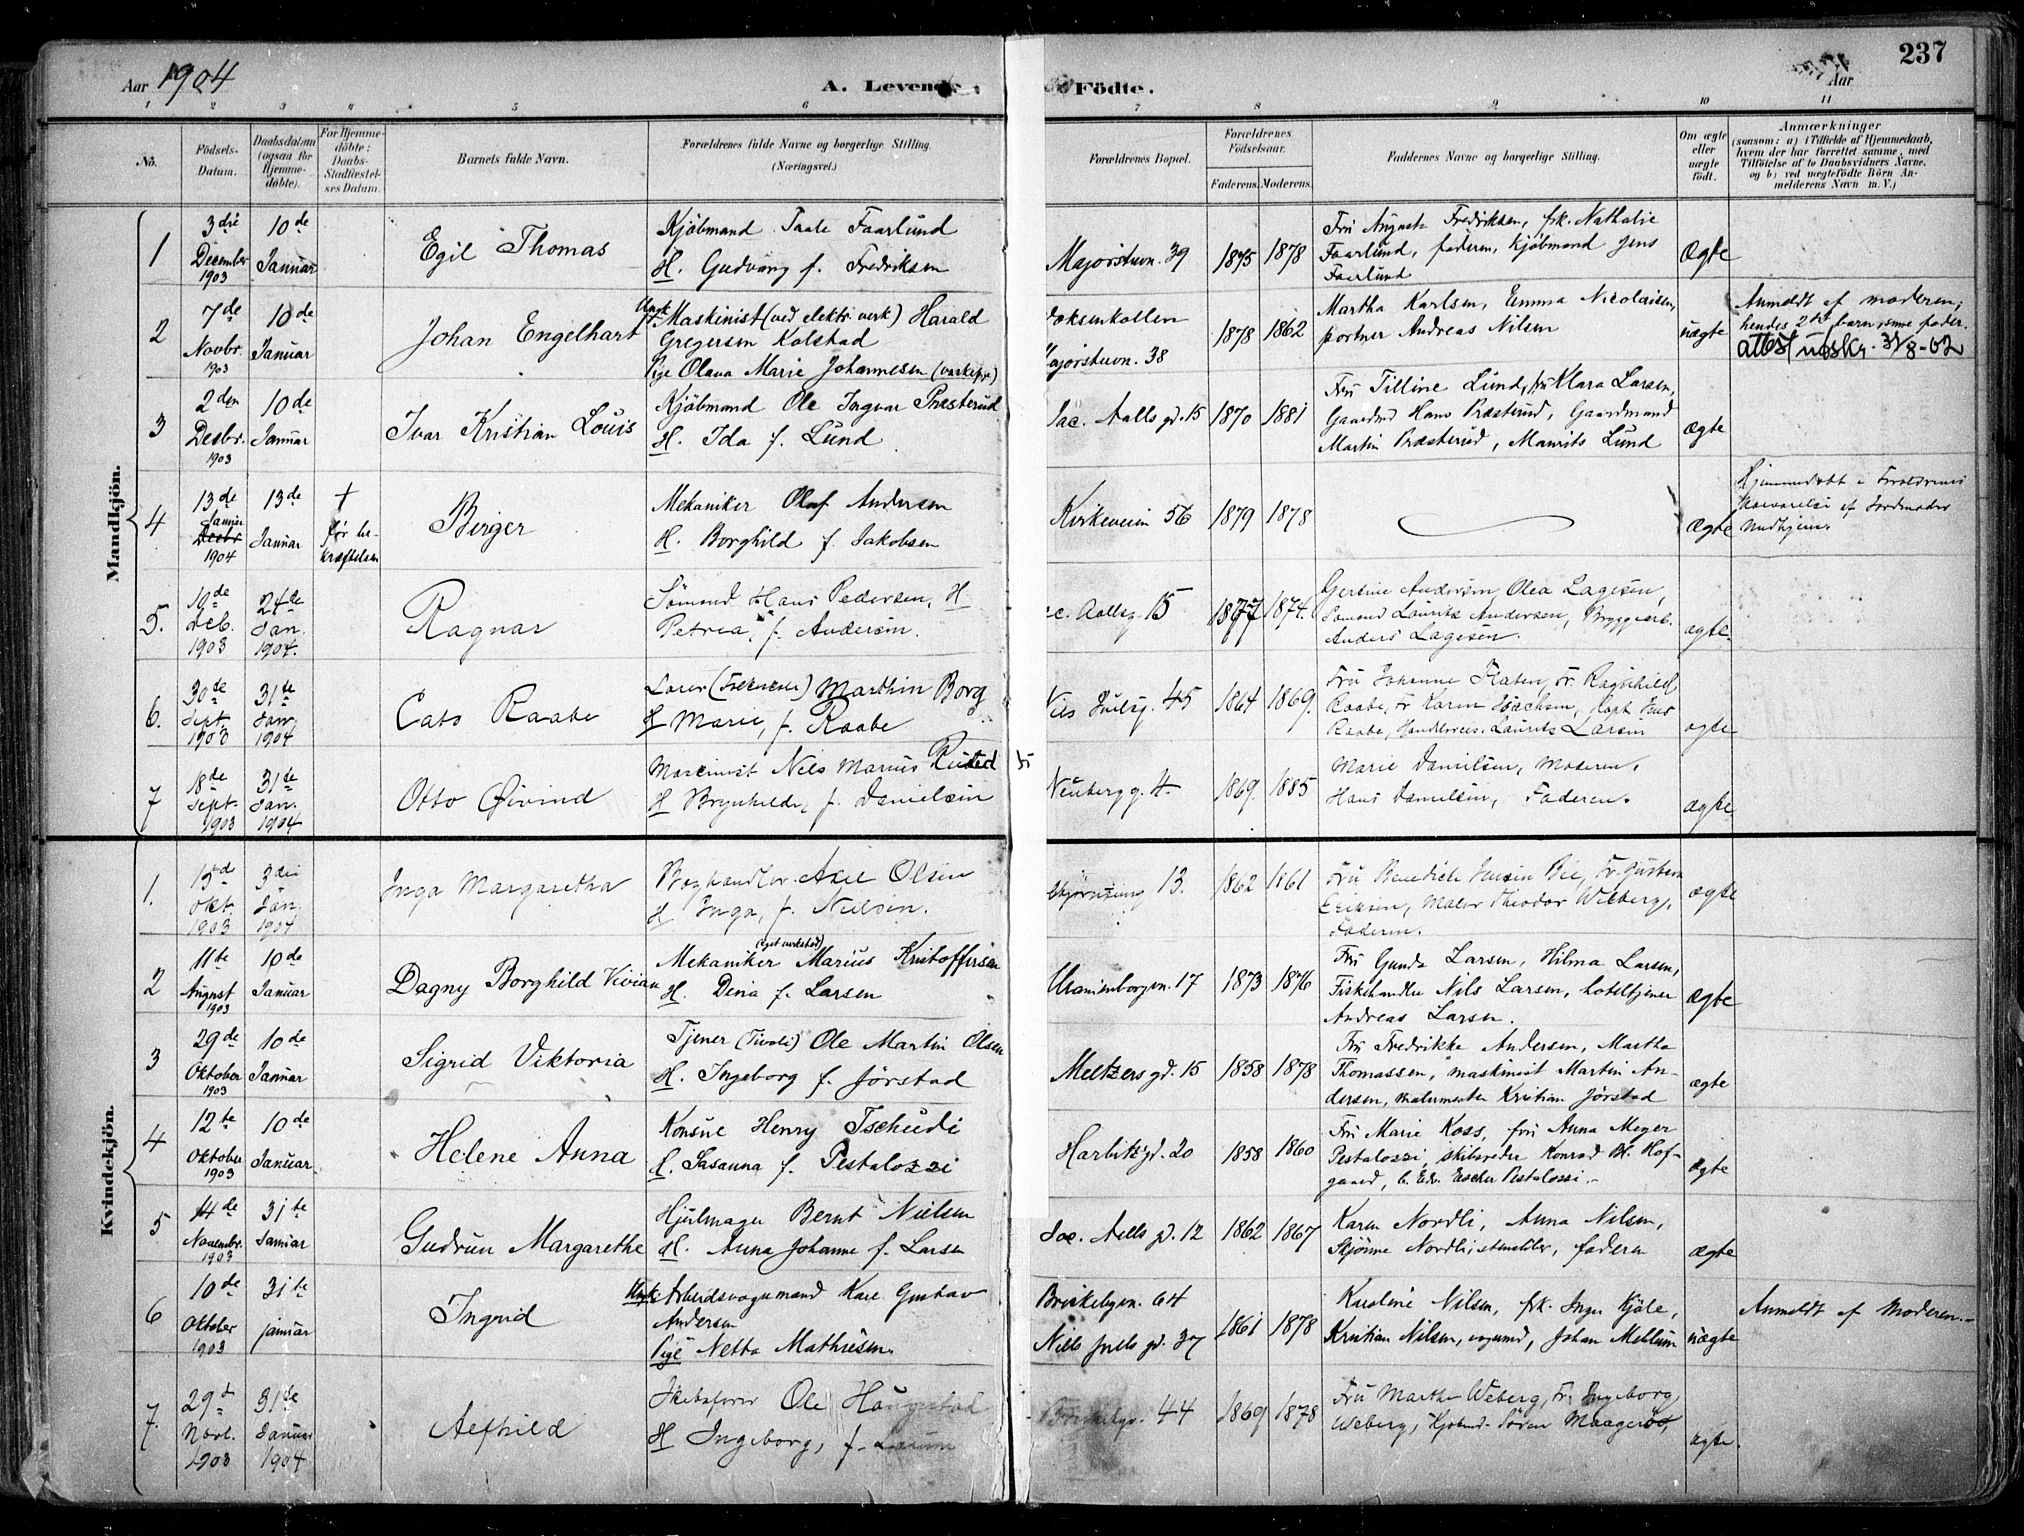 Aar 1904
A. Levende
Födte.
Aar
237
1 2 3 4 5 6 7 8 9 10 11
No.
Födsels-
Datum.
Daabsdatum
(ogsaa for
Hjemme-
döbte).
For Hjemme-
döbte:
Daabs-
Stadfæstel-
ses Datum.
Barnets fulde Navn.
Forældrenes fulde Navne og borgerlige Stilling.
(Næringsvei.)
Forældrenes Bopæl.
Forældrenes
Födselsaar.
Faderens. Moderens.
Faddernes Navne og borgerlige Stilling.
Om ægte
eller
uægte
födt.
Anmærkninger
(saasom: a) i Tilfælde af Hjemmedaab,
hvem der har forrettet samme, med
Tilföielse af to Daabsvidners Navne,
og b) ved uægtefödte Börn An-
melderens Navn m. V.)
Mandkjön.
1
3die
December
1903
10de
Januar
Egil Thomas
Kjöbmand Faarlund
H. f. Fredriksen
Majorstuvn. 39
1875 1878
Fru Augusta Fredriksen, frk. Nathalie
Faarlund, faderen, kjöbmand Jens
Faarlund
Ægte
2
7de
Novbr.
1903
10de
Januar
Johan Engelhart
Maskinist (ved elektr. verk) Harald
Gregersen Kolstad
Pige Olava Marie Johannesen
Majorstuvn. 38
1878 1862
Martha Karlsen, Emma Nicolaisen,
portner Andreas Nilsen
uægte
Anmeldt af moderen;
hendes 2det barn, samme fader.
attest udskr. 31/8-62
3
2den
Desbr.
1903
10de
Januar
Ivar Kristian Louis
Kjöbmand Ole Ingvar Præsterud
H. Ida f. Lund
Jac. Aalls gd. 15
1870 1881
Fru Tilline Lund, fru Klara Larsen,
Gaardmd Hans Præsterud, Gaardmand
Martin Præsterud, Maurits Lund
ægte
4
13de
Januar
Desbr
1904
13de
Januar
†
før be-
kræftelsen
Birger
Mekaniker Olaf Andersen
H. Borghild f. Jakobsen
Kirkeveien 56
1879 1878
ægte
Hjemmedöbt i Forældrenes
Nærværelse af Jordmoder
5.
19de
Deb.
1903
24de
Jan.
1904.
Ragnar
Sømand Hans Pedersen, H
Petrea, f. Andersen.
Aallsg. 15
1877 1874.
Gertine Andersen, Olea Lagesen,
Sømand Laurits Andersen, Bryggearb.
Anders Lagesen.
ægte.
6.
30de
Sept.
31te
Jan.
1904
Cato Raabe
Marthin Borg
H Marie, f. Raabe
Niels Juelsg. 45
1864 1869.
Fru Johanne Fr Ragnhild
Raabe, Fr Karen
Raabe, Laurits Larsen
ægte
7
18de
Sept.
1903
31te
Jan.
1904
Otto Øivind
Maskinist Nils Marius Rusted
H Brynhilde, f. Danielsen
Neubergg. 4.
1869. 1885
Marie Danielsen, Moderen.
Hans Danielsen, Faderen.
ægte.
Kvindekjön.
1.
15de
Okt.
1903
3die
Jan.
1904
Inga Margaretha
Boghandler Axel Olsen
H Inga, f. Nielsen.
13.
1862 1861
Fru Benedicte Jensen Bie, Fr.
Eriksen, Maler Theodor Wiberg,
Faderen.
ægte
2
11te
August
1903
10de
Januar
Dagny Borghild Vivian
(eget verksted)
Mekaniker Marius Kristoffersen
H. Dina f. Larsen
Uranienborgvn. 17
1873 1876
Fru Gunda Larsen, Hilma Larsen,
Fiskehandler Nils Larsen, hoteltjener
Andreas Larsen.
ægte
3
29de
Oktober
1903
10de
Januar
Sigrid Viktoria
Tjener (Tivoli) Ole Martin Olsen
H. Ingeborg f. Jørstad
Meltzers gd. 15
1858 1878
Fru Fredrikke Andersen, Martha
Thomassen, maskinist Martin An-
dersen, malermester Kristian Jørstad
ægte
4
12te
Oktober
1903
10de
Januar
Helene Anna
Konsul Henry Tschudi
H. Susanna f. Pestalozzi
Harbitzgd. 20
1858 1860
Fru Marie Koss, fru Anna Meyer
Pestalozzi, skibsreder Konrad M. Hof-
gaard, C. Edv. Escher Pestalozzi.
ægte
5
14de
Novembr.
1903
31te
Januar
Gudrun Margarethe
Hjulmager Bernt Nielsen
H. Anna Johanne f. Larsen
Jac. Aalls gd. 12
1862 1867
Karen Nordli, Anna Nilsen,
Skjönne Nordli, stenhlr, faderen
ægte
6
10de
Oktober
1903
31te
januar
Ingrid
Ungk. Arbeidsvognmand Karl Gustav
Andersen
Pige Netta Mathiesen.
Briskebyvn. 64
Niels Juels gd. 37
1861 1878
Karoline Nilsen, frk. Inger Kjöle,
Kristian Nilsen, vognmd, Johan Mellum
uægte
Anmeldt af Moderen.
7.
29d
Novb.
1903
31te
Januar
1904
Alfhild
Skibsfører Ole Haugstad
H Ingeborg, f. Larsen
Briskebyv. 44
1869 1878
Fru Marthe Weberg, Fr. Ingeborg
Weberg, Kjöbmd. Sören Maagerøt,
ægte.